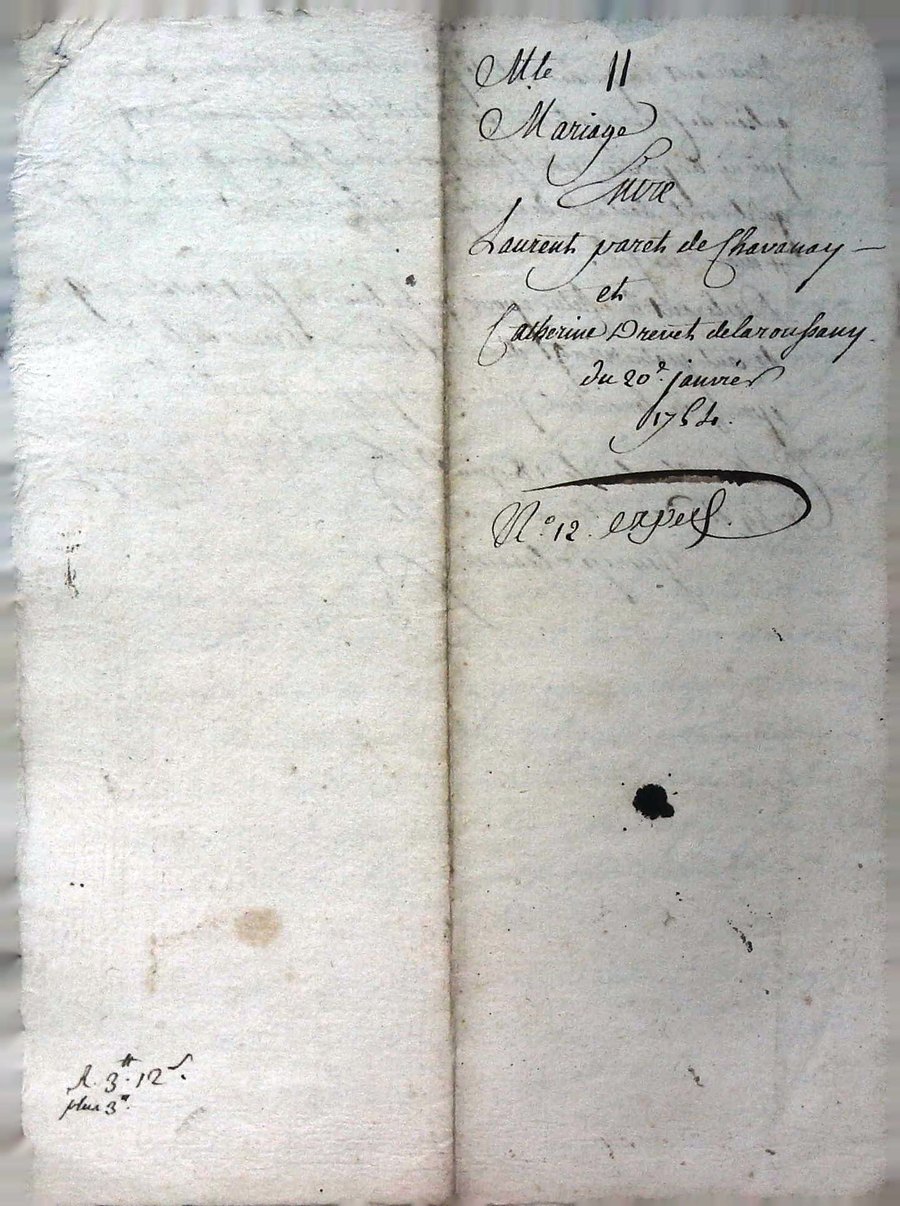 Mle 11
Mariage
Entre
Laurent paret de Chavanay
et
Catherine Drevet delaroussany
du 20e janvier
1754.
N.o 12. exped
R. 3# 12s.
plus 3#.